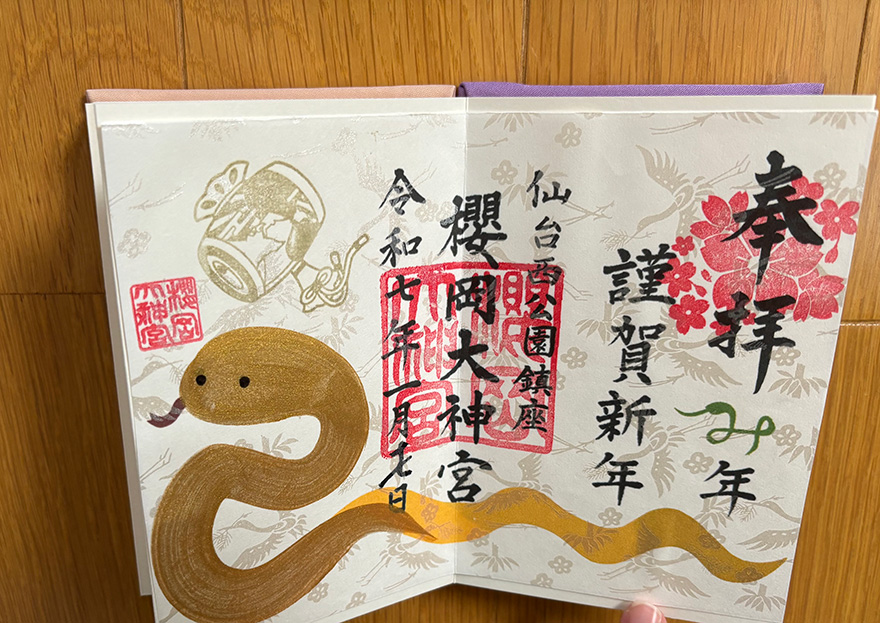 奉拝
み年
謹賀新年
仙台西公園鎮座
櫻岡大神宮
令和七年一月七日
櫻岡
大神宮
櫻岡
大神宮